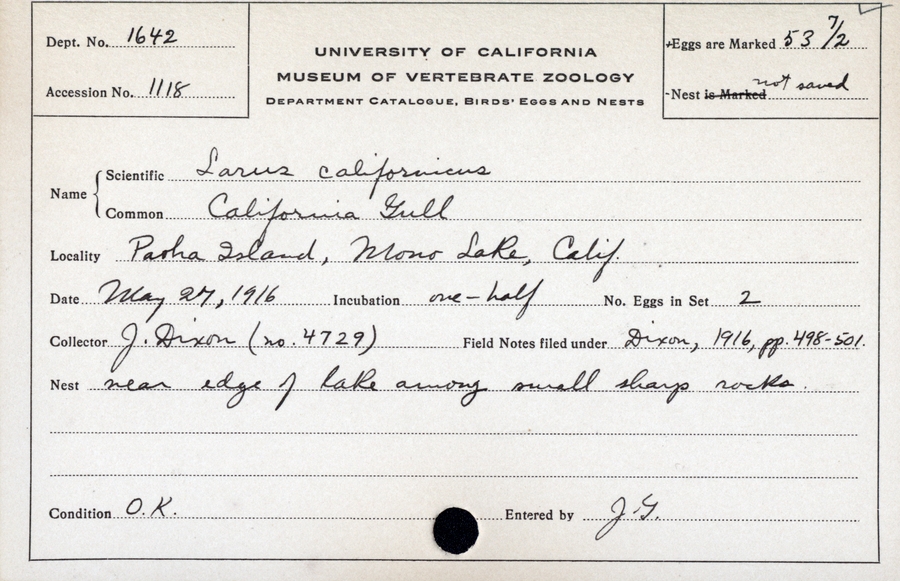 Dept. No. 1642
Accession No. 1118
UNIVERSITY OF CALIFORNIA
MUSEUM OF VERTEBRATE ZOOLOGY
DEPARTMENT CATALOGUE, BIRDS' EGGS AND NESTS
Eggs are Marked 53 7/2
Nest is Marked not saved
Name
Scientific Larus californicus
Common California Gull
Locality Paoha Island, Mono Lake, Calif.
Date May 27, 1916 Incubation one-half No. Eggs in Set 2
Collector J. Dixon (no. 4729) Field Notes filed under Dixon, 1916, pp. 498-501.
Nest near edge of lake among small sharp rocks.
Condition O.K. Entered by J.G.